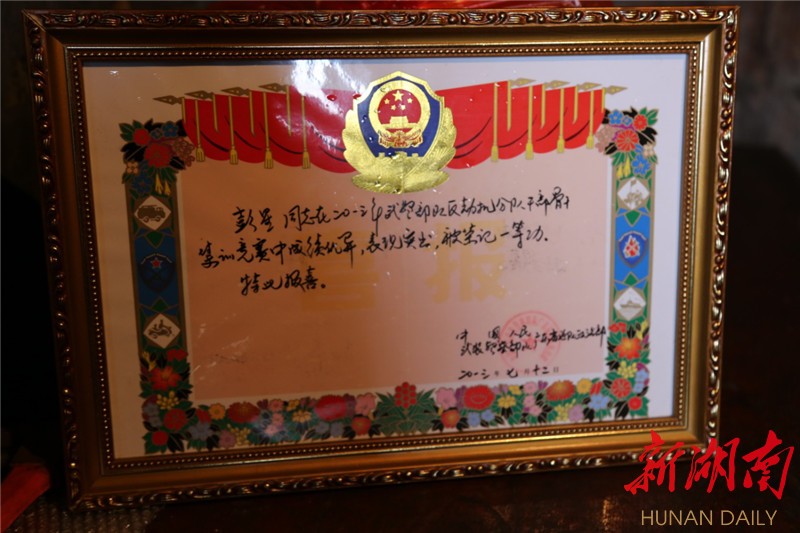 彭星同志在二〇一三年武警部队反劫机分队干部骨干
集训竞赛中成绩优异，表现突出，被荣记一等功。
特此报喜。
喜报
中国人民
武装警察部队广东省总队政治部
二〇一三年七月十二日
新湖南
HUNAN DAILY